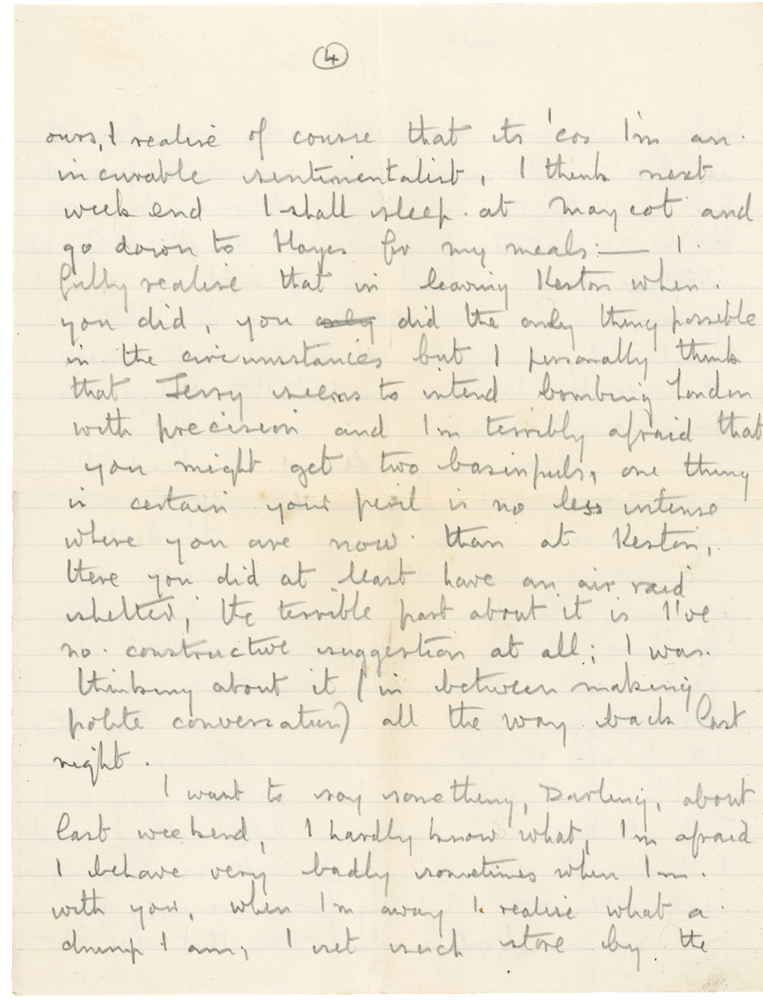 4
ours, I realise of course that its 'cos I'm an
incurable sentimentalist, I think next
week end I shall sleep at Maycot and
go down to Hayes for my meals:— I
fully realise that in leaving Keston when
you did, you only did the only thing possible
in the circumstances but I personally think
that Jerry seems to intend bombing London
with precision and I'm terribly afraid that
you might get two basinfuls, one thing
is certain your peril is no less intense
where you are now than at Keston,
there you did at least have an air raid
shelter; the terrible part about it is I've
no constructive suggestion at all; I was
thinking about it (in between making
polite conversation) all the way back last
night.
I want to say something, Darling, about
last weekend, I hardly know what, I'm afraid
I behave very badly sometimes when I'm
with you, when I'm away I realise what a
chump I am; I set such store by the